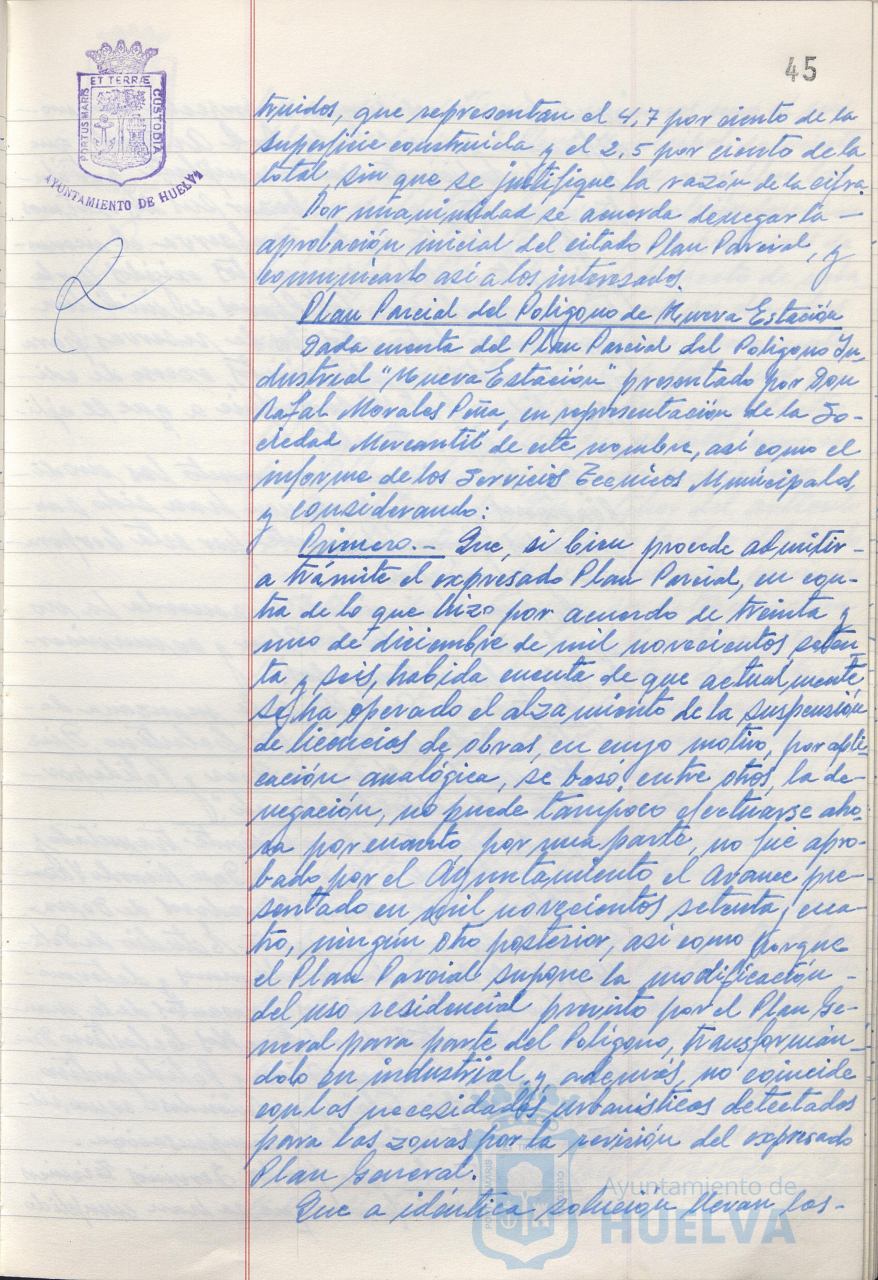 45
ET TERRÆ
PORTUS MARIS
CUSTODIA
AYUNTAMIENTO DE HUELVA
truidos, que representan el 4,7 por ciento de la
superficie construida y el 2,5 por ciento de la
total sin que se justifique la razón de la cifra.
Por unanimidad se acuerda denegar la —
aprobación inicial del citado Plan Parcial, y
comunicarlo así a los interesados.
Plan Parcial del Polígono de Nueva Estación
Dada cuenta del Plan Parcial del Polígono In-
dustrial "Nueva Estación" presentado por Don
Rafael Morales Peña, en representación de la So-
ciedad Mercantil de este nombre, así como el
informe de los Servicios Tecnicos Municipales,
y considerando:
Primero.— Que, si bien procede admitir -
a trámite el expresado Plan Parcial, en con-
tra de lo que hizo por acuerdo de treinta y
uno de diciembre de mil novecientos seten
ta y seis, habida cuenta de que actualmente
se ha operado el alzamiento de la suspensión
de licencias de obras, en cuyo motivo, por apli
cación analógica, se basó, entre otros, la de-
negación, no puede tampoco efectuarse aho-
ra por cuanto por una parte, no fue apro-
bado por el Ayuntamiento el Avance pre-
sentado en mil novecientos setenta y cua-
tro, ningún otro posterior, así como porque
el Plan Parcial supone la modificación -
del uso residencial previsto por el Plan Ge-
neral para parte del Polígono, transformán-
dolo en industrial y, además, no coincide
con las necesidades urbanísticas detectadas
para las zonas por la revisión del expresado
Plan General.
Que a idéntica solución llevan las-
Ayuntamiento de
HUELVA